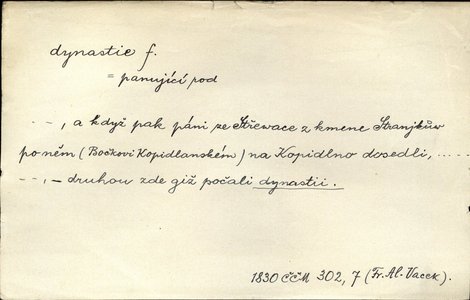 dynastie f.
= panující rod
- -, a když pak páni ze Střewace z kmene Stranjkůw
po něm (Bočkovi Kopidlanském) na Kopidlno dosedli, .....
- -, – druhou zde giž počali dynastii.
1830 ČČM 302, 7 (Fr. Al. Vacek).